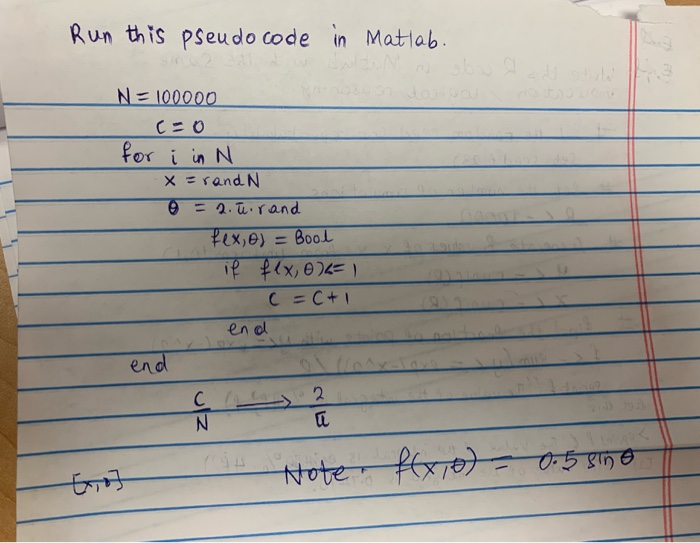 Run this pseudocode in Matlab.
N = 100000
C = 0
for i in N
x = randN
θ = 2.π.rand
f(x,θ) = Bool
if f(x,θ)<= 1
C = C+1
end
end
C/N → 2/π
Note. f(x,θ) = 0.5 sinθ